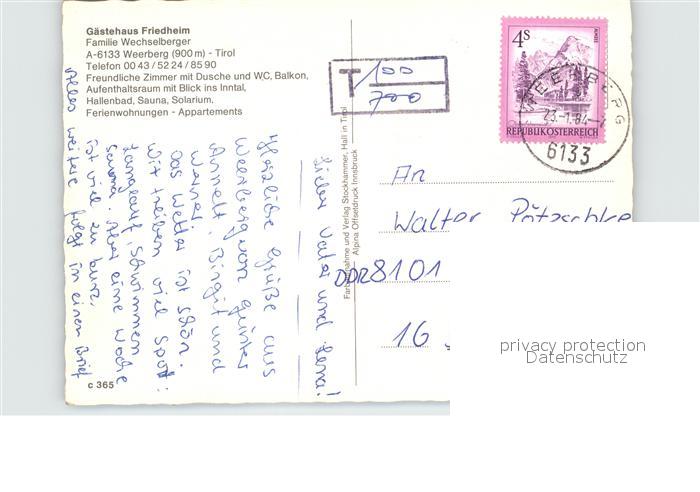 Gästehaus Friedheim
Familie Wechselberger
A-6133 Weerberg (900 m) - Tirol
Telefon 00 43 / 52 24 / 85 90
Freundliche Zimmer mit Dusche und WC, Balkon,
Aufenthaltsraum mit Blick ins Inntal,
Hallenbad, Sauna, Solarium,
Ferienwohnungen - Appartements
T 100
700
4S
REPUBLIK ÖSTERREICH
WEERBERG
23.-1.84-
6133
Lieber Vater und Lena!
Herzliche Grüße aus
Weerberg von Günter
Annett, Birgit und
Werner.
Das Wetter ist schön.
Wir treiben viel Sport:
Langlauf, Schwimmen
Sauna. Aber eine Woche
ist viel zu kurz.
Alles weitere folgt in einem Brief
Farbaufnahme und Verlag Stockhammer, Hall in Tirol
Alpina Offsetdruck Innsbruck
An
Walter Pötzschke
DDR 8101
16
c 365
privacy protection
Datenschutz